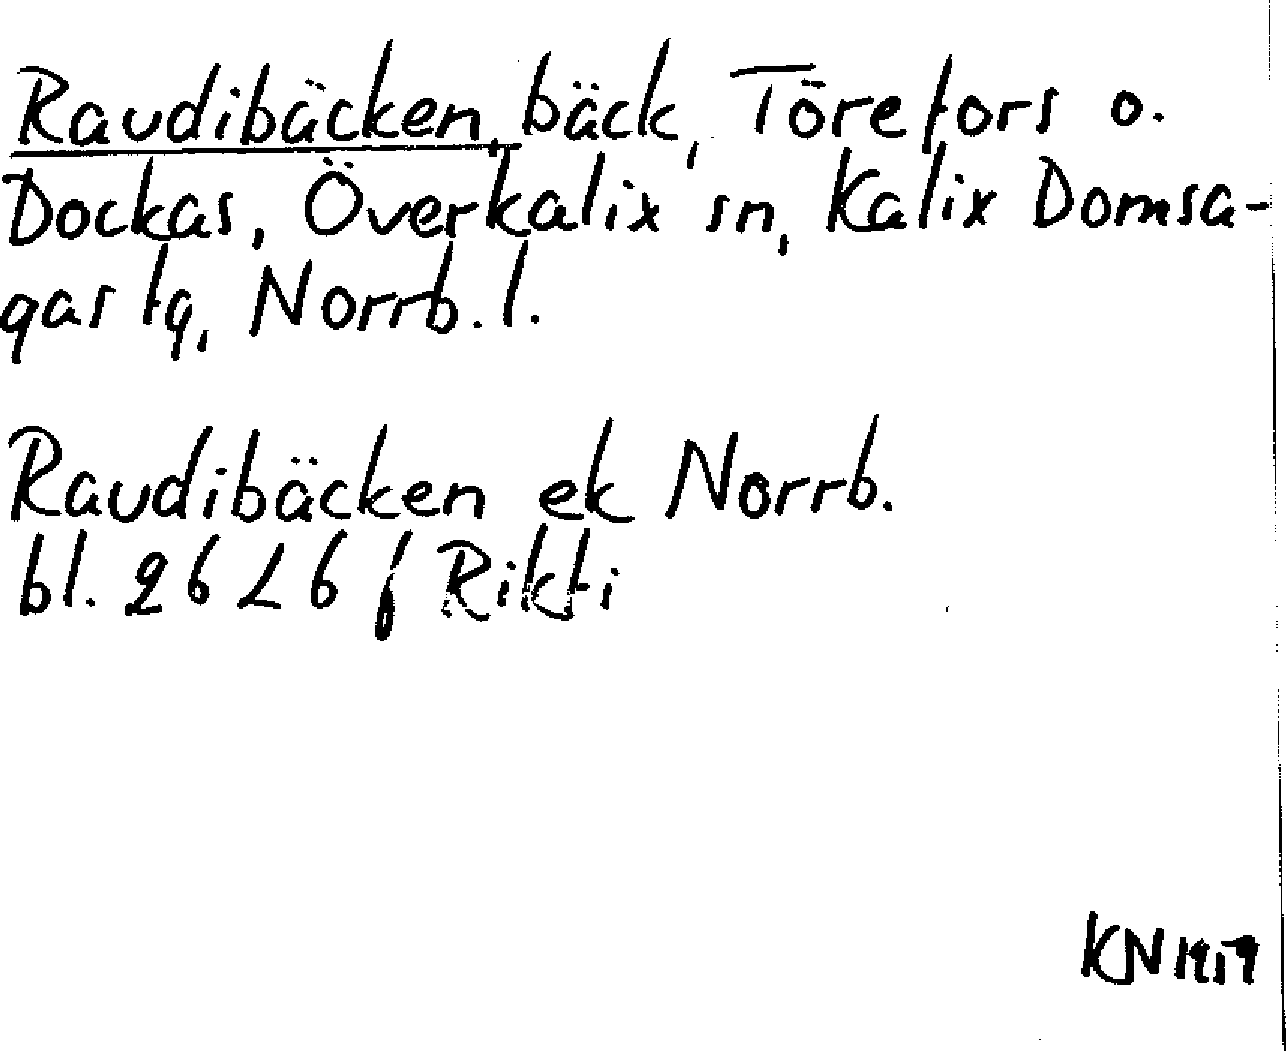 Raudibäcken, bäck, Törefors o.
Dockas, Överkalix sn, Kalix Domsa-
gas tg, Norrb. l.
Raudibäcken ek Norrb.
bl. 26 L 6 f Rikti
KN